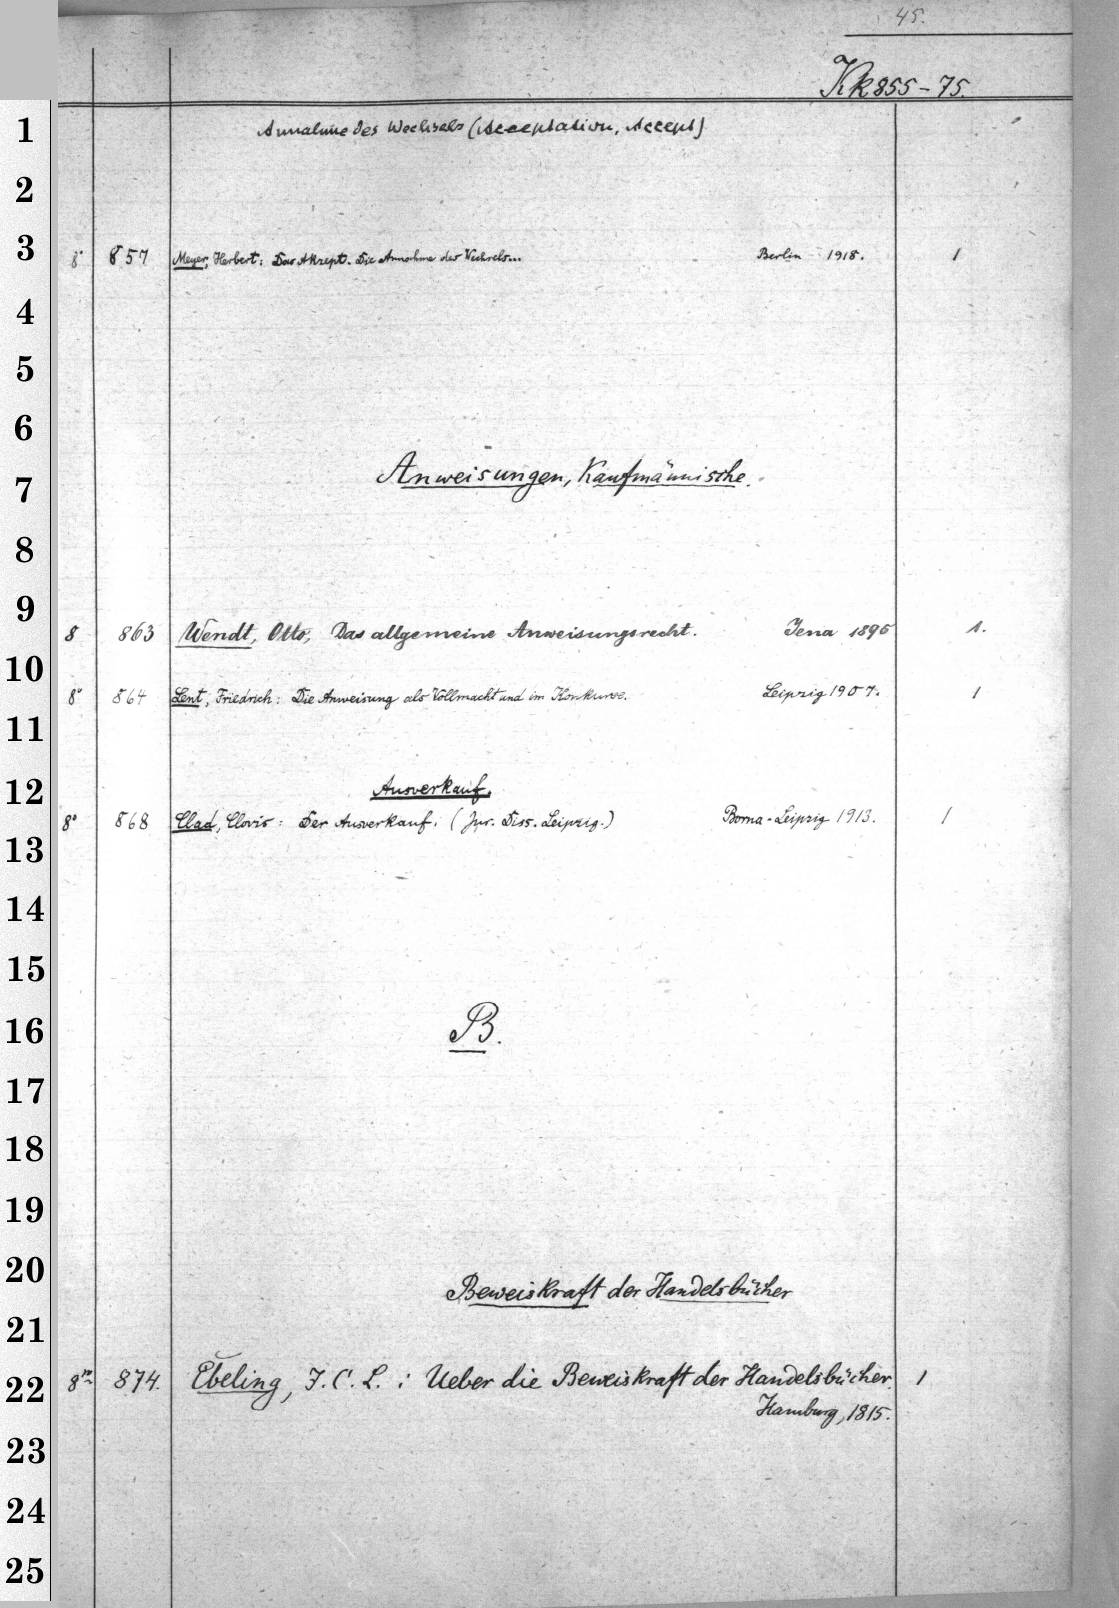 45.
Kk 855-75.
1
Annahme des Wechsels (Acceptation, Accept)
2
3
8° 857 Meyer, Herbert: Das Akzept. Die Annahme des Wechsels... Berlin 1918. 1
4
5
6
7
Anweisungen, Kaufmännische.
8
9
8 863 Wendt, Otto, Das allgemeine Anweisungsrecht. Jena 1895 1.
10
8° 864 Lent, Friedrich: Die Anweisung als Vollmacht und im Konkurse. Leipzig 1907. 1
11
12
Ausverkauf.
8° 868 Clad, Clovis: Der Ausverkauf. (Jur. Diss. Leipzig.) Borna-Leipzig 1913. 1
13
14
15
16
B.
17
18
19
20
Beweiskraft der Handelsbücher
21
22
8vo 874. Ebeling, J. C. L.: Ueber die Beweiskraft der Handelsbücher. 1
Hamburg, 1815.
23
24
25